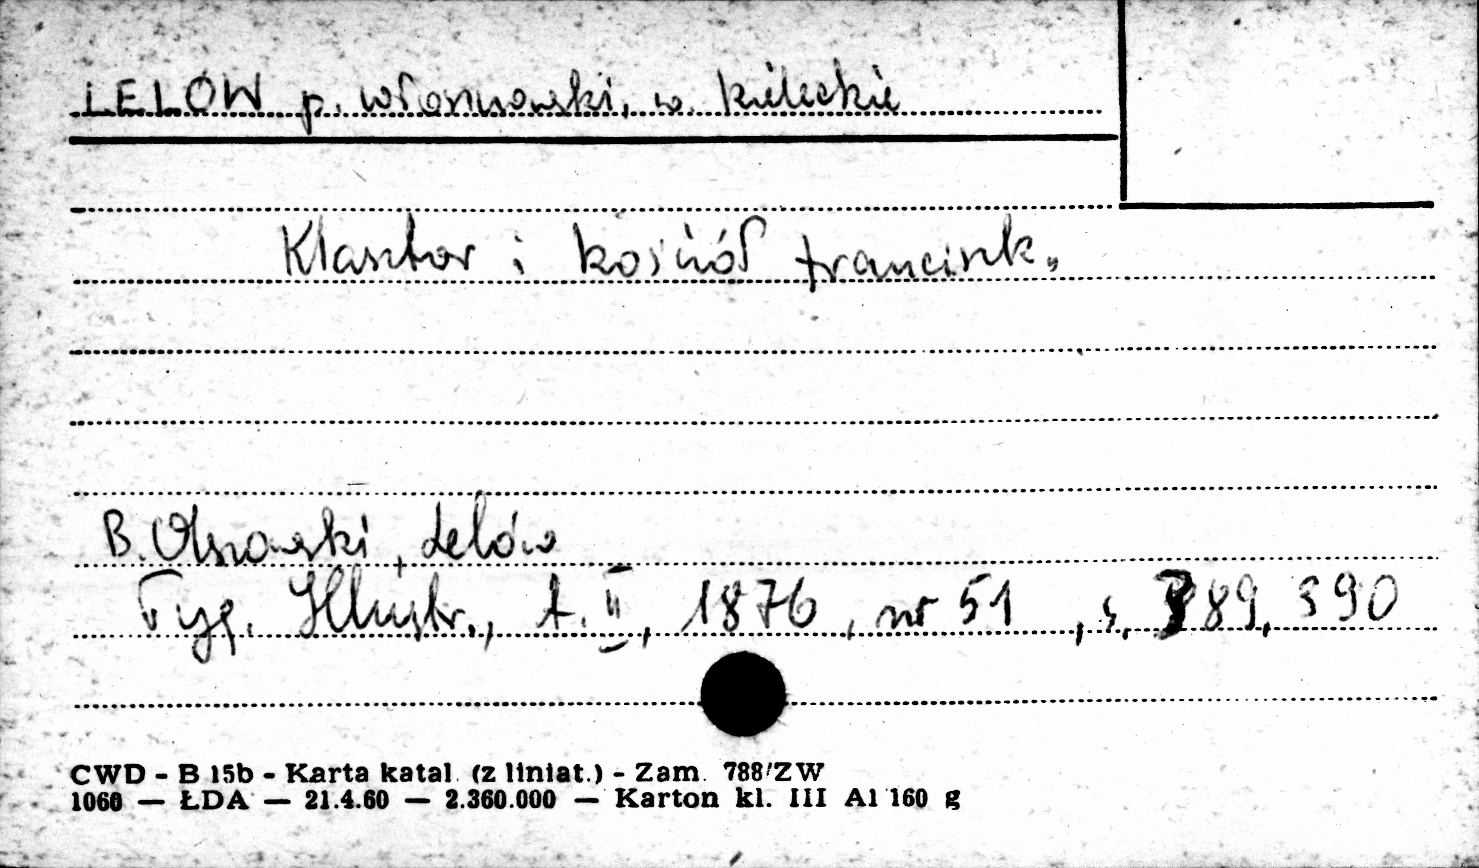 LELÓW p. włoszczowski, w. kieleckie
Klasztor i kościół francisk.
B. Olszowski, Lelów
Tyg. Illustr., t. II, 1876, nr 51, s. 389, 390
CWD - B 15b - Karta katal. (z liniat.) - Zam. 788/ZW
1060 — ŁDA — 21.4.60 — 2.360.000 — Karton kl. III A1 160 g